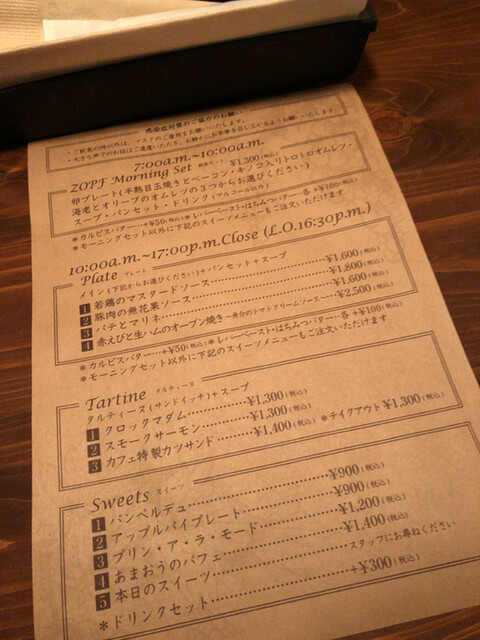 感染症対策のご協力のお願い
・ご飲食の時以外は、マスクのご着用をお願いいたします。
・大きな声でのお話はご遠慮いただき、お静かにお食事を召し上がるようお願いいたします。
7:00a.m.~10:00a.m.
ZOPF Morning Set ¥1,300(税込)
卵プレート(半熟目玉焼きとベーコン・キノコ入りトロトロオムレツ・
海老とオリーブのオムレツの3つからお選びください)
スープ・パンセット・ドリンク(アルコール以外)
*カルピスバター…+¥50(税込)*レバーペースト・はちみつバター…各+¥100(税込)
*モーニングセット以外に下記のスイーツメニューもご注文いただけます
10:00a.m.~17:00p.m.Close (L.O.16:30p.m.)
Plate プレート
メイン(下記からお選びください)+パンセット+スープ
1 若鶏のマスタードソース ¥1,600(税込)
2 豚肉の無花果ソース ¥1,800(税込)
3 パテとマリネ ¥1,600(税込)
4 赤えびと生ハムのオーブン焼き~魚介のトマトクリームソース ¥2,500(税込)
*カルピスバター…+¥50(税込)*レバーペースト・はちみつバター…各+¥100(税込)
*モーニングセット以外に下記のスイーツメニューもご注文いただけます
Tartine タルティーヌ
タルティーヌ(サンドイッチ)+スープ
1 クロックマダム ¥1,300(税込)
2 スモークサーモン ¥1,300(税込)
3 カフェ特製カツサンド ¥1,400(税込) *テイクアウト ¥1,300(税込)
Sweets スイーツ
1 パンペルデュ ¥900(税込)
2 アップルパイプレート ¥900(税込)
3 プリン・ア・ラ・モード ¥1,200(税込)
4 あまおうのパフェ ¥1,400(税込)
5 本日のスイーツ スタッフにお尋ねください
*ドリンクセット +¥300(税込)